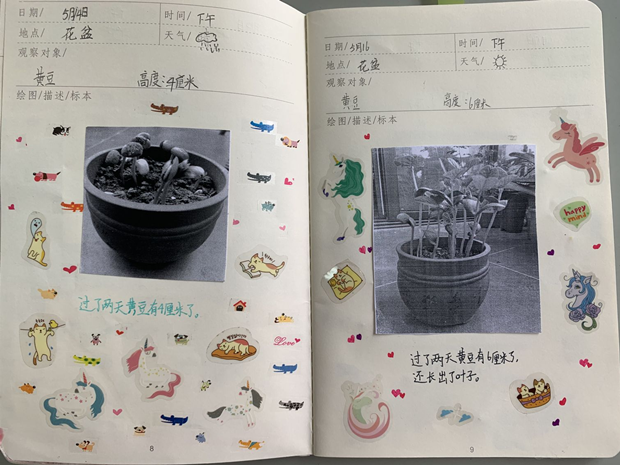 日期/ 5月14日 时间/ 下午
地点/ 花盆 天气/
观察对象/
黄豆 高度:4厘米
绘图/描述/标本
过了两天黄豆有4厘米了。
Love
8
日期/ 5月16 时间/ 下午
地点/ 花盆 天气/
观察对象/
黄豆 高度:6厘米
绘图/描述/标本
happy
mind
过了两天黄豆有6厘米了,
还长出了叶子。
9